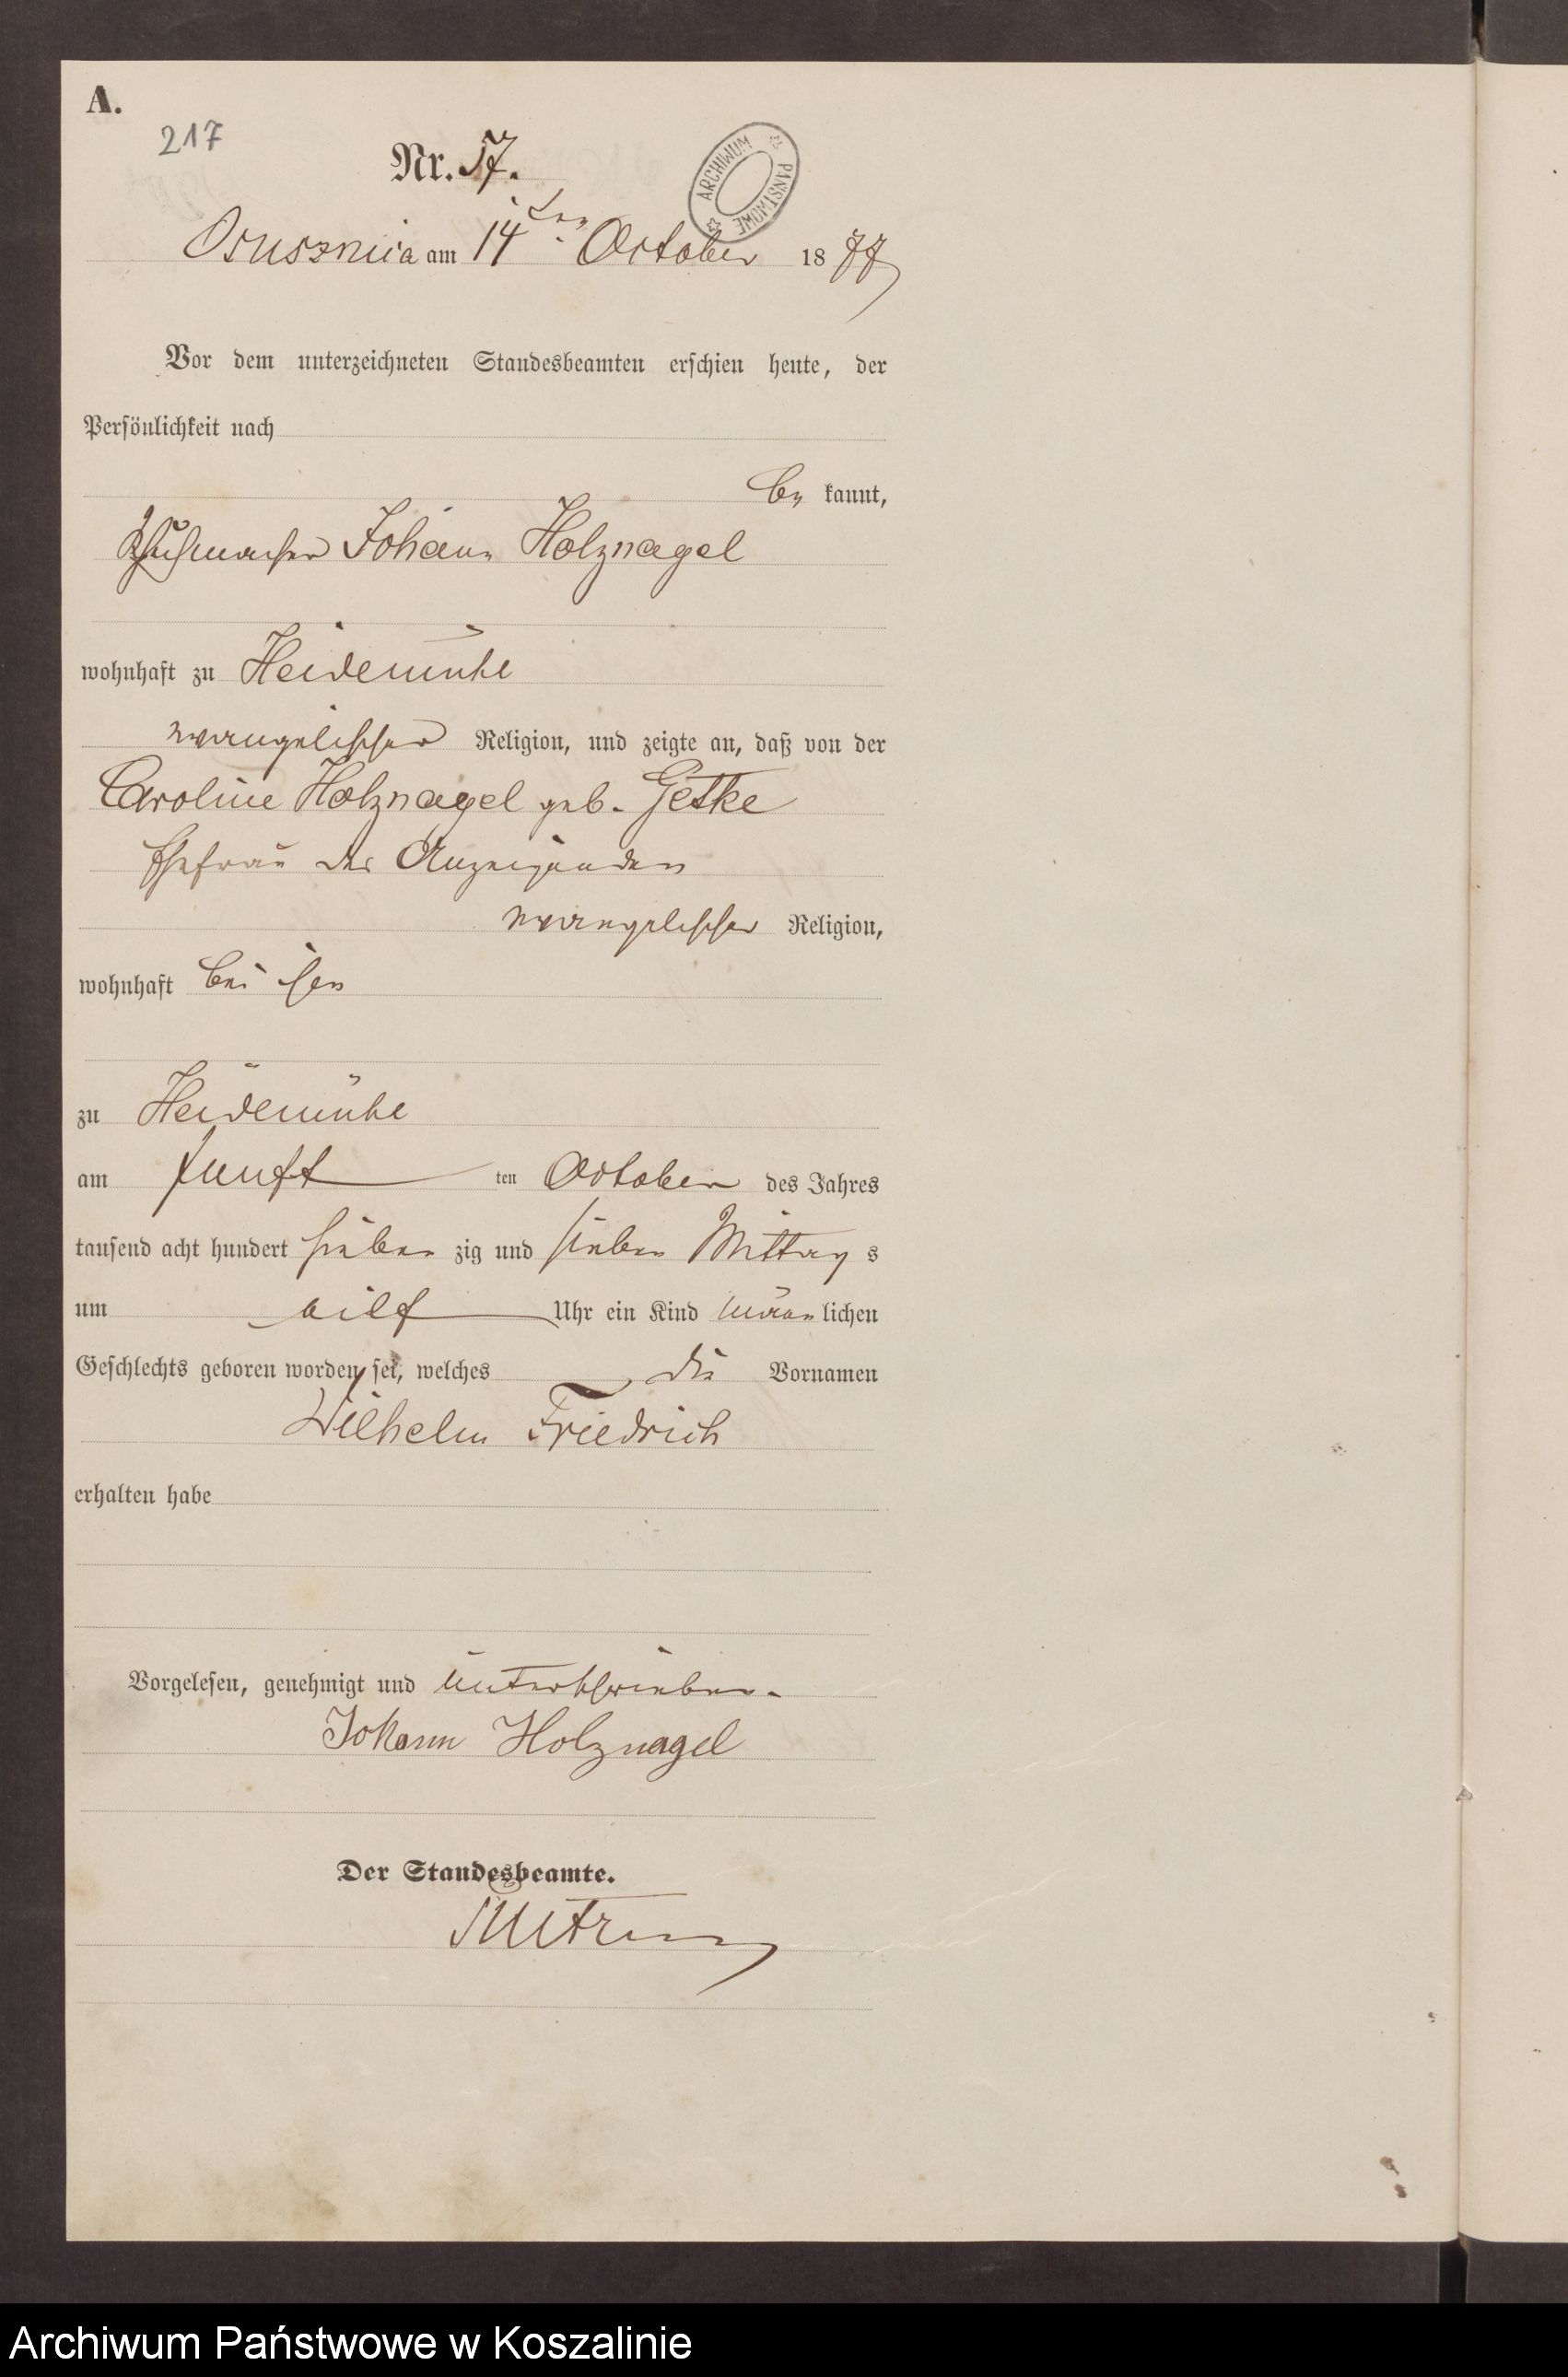 A.
217
Nr. 57.
ARCHIWUM PAŃSTWOWE
Osusznica am 14ten October 1877
Vor dem unterzeichneten Standesbeamten erschien heute, der
Persönlichkeit nach
be kannt,
Schuhmacher Johann Holznagel
wohnhaft zu Heidemühl
evangelischer Religion, und zeigte an, daß von der
Caroline Holznagel geb. Getke
Ehefrau des Anzeigenden
evangelischer Religion,
wohnhaft bei ihm
zu Heidemühl
am fünft ten October des Jahres
tausend acht hundert sieben zig und sieben Mittag s
um eilf Uhr ein Kind männ lichen
Geschlechts geboren worden sei, welches die Vornamen
Wilhelm Friedrich
erhalten habe
Vorgelesen, genehmigt und unterschrieben.
Johann Holznagel
Der Standesbeamte.
Archiwum Państwowe w Koszalinie